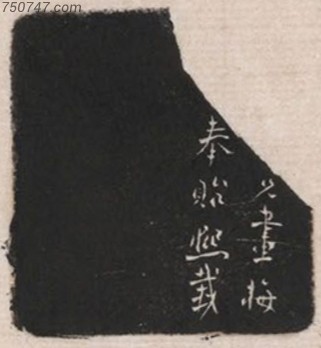 750747.com
兄畫梅
奉貽熙載